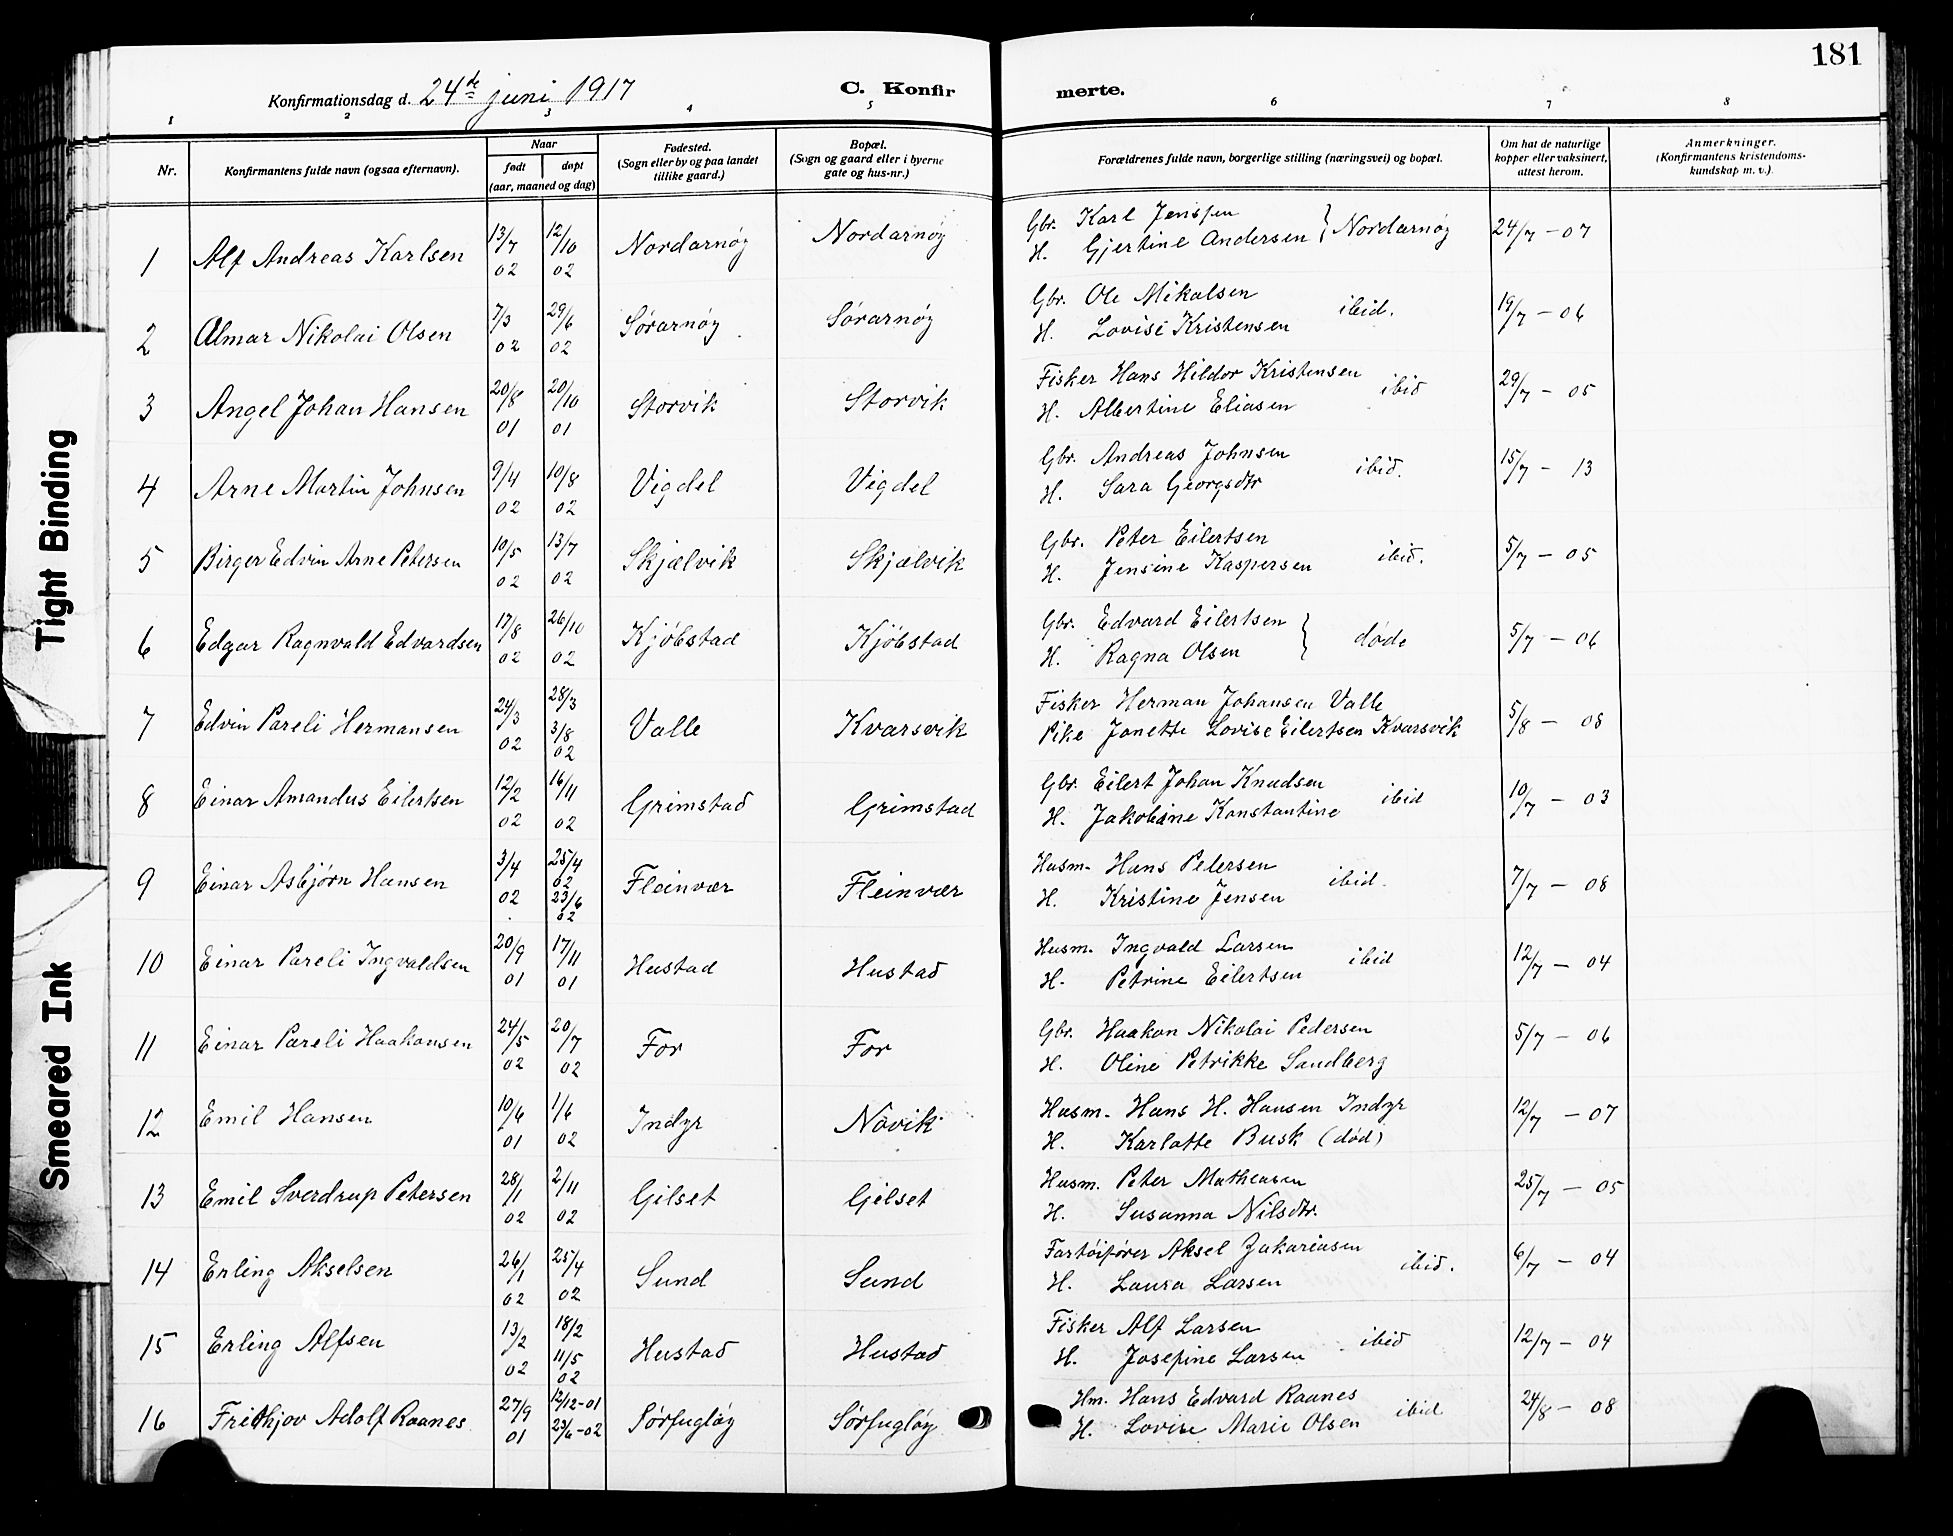 181
Konfirmationsdag d. 24de juni 1917 C. Konfirmerte.
1 2 3 4 5 6 7 8
Nr. Konfirmantens fulde navn (ogsaa efternavn). Naar født døpt (aar, maaned og dag) Fødested. (Sogn eller by og paa landet tillike gaard.) Bopæl. (Sogn og gaard eller i byerne gate og hus-nr.) Forældrenes fulde navn, borgerlige stilling (næringsvei) og bopæl. Om hat de naturlige kopper eller vaksinert, attest herom. Anmerkninger. (Konfirmantens kristendoms-kundskap m. v.).
1 Alf Andreas Karlsen 13/7 02 12/10 02 Nordarnøy Nordarnøy Gbr. Karl Jenssen } Nordarnøy 24/7 – 07
H. Gjertine Andersen
2 Almar Nikolai Olsen 7/3 02 29/6 02 Sørarnøy Sørarnøy Gbr. Ole Mikalsen ibid. 19/7 – 06
H. Lovise Kristensen
3 Angel Johan Hansen 20/8 01 20/10 01 Storvik Storvik Fisker Hans Hildor Kristensen ibid 29/7 – 05
H. Albertine Eliasen
4 Arne Martin Johnsen 9/4 02 10/8 02 Vigdel Vigdel Gbr. Andreas Johnsen ibid. 15/7 – 13
H. Sara Georgsdtr
5 Birger Edvin Arne Petersen 10/5 02 13/7 02 Skjælvik Skjælvik Gbr. Peter Eilertsen ibid. 5/7 – 05
H. Jensine Kaspersen
6 Edgar Ragnvald Edvardsen 17/8 02 26/10 02 Kjøbstad Kjøbstad Gbr. Edvard Eilertsen } døde 5/7 – 06
H. Ragna Olsen
7 Edvin Pareli Hermansen 24/3 02 28/3 3/8 02 Valle Kvarsvik Fisker Herman Johansen Valle 5/8 – 08
Pike Janette Lovise Eilertsen Kvarsvik
8 Einar Amandus Eilertsen 12/2 02 16/11 02 Grimstad Grimstad Gbr. Eilert Johan Knudsen ibid 10/7 – 03
H. Jakobine Konstantine
9 Einar Asbjørn Hansen 3/4 02 25/4 02 23/6 02 Fleinvær Fleinvær Husm. Hans Petersen ibid. 7/7 – 08
H. Kristine Jensen
10 Einar Pareli Ingvaldsen 20/9 01 17/11 01 Hustad Hustad Husm. Ingvald Larsen ibid 12/7 – 04
H. Petrine Eilertsen
11 Einar Pareli Haakonsen 24/5 02 20/7 02 For For Gbr. Haakon Nikolai Pedersen 5/7 – 06
H. Oline Petrikke Sandberg
12 Emil Hansen 10/6 01 1/6 02 Indyr Novik Husm. Hans H. Hansen Indyr 12/7 – 07
H. Karlotte Busk (død)
13 Emil Sverdrup Petersen 28/1 02 2/11 02 Gilset Gilset Husm. Peter Matheasen 25/7 – 05
H. Susanna Nilsdtr.
14 Erling Akselsen 26/1 02 25/4 02 Sund Sund Fartøifører Aksel Zakariasen ibid. 6/7 – 04
H. Laura Larsen
15 Erling Alfsen 13/2 02 18/2 11/5 02 Hustad Hustad Fisker Alf Larsen ibid 12/7 – 04
H. Josefine Larsen
16 Frithjov Adolf Raanes 27/9 01 12/12-01 23/6-02 Sørfugløy Sørfugløy Hm. Hans Edvard Raanes ibid 24/8 – 08
H. Lovise Marie Olsen
Tight Binding
Smeared Ink